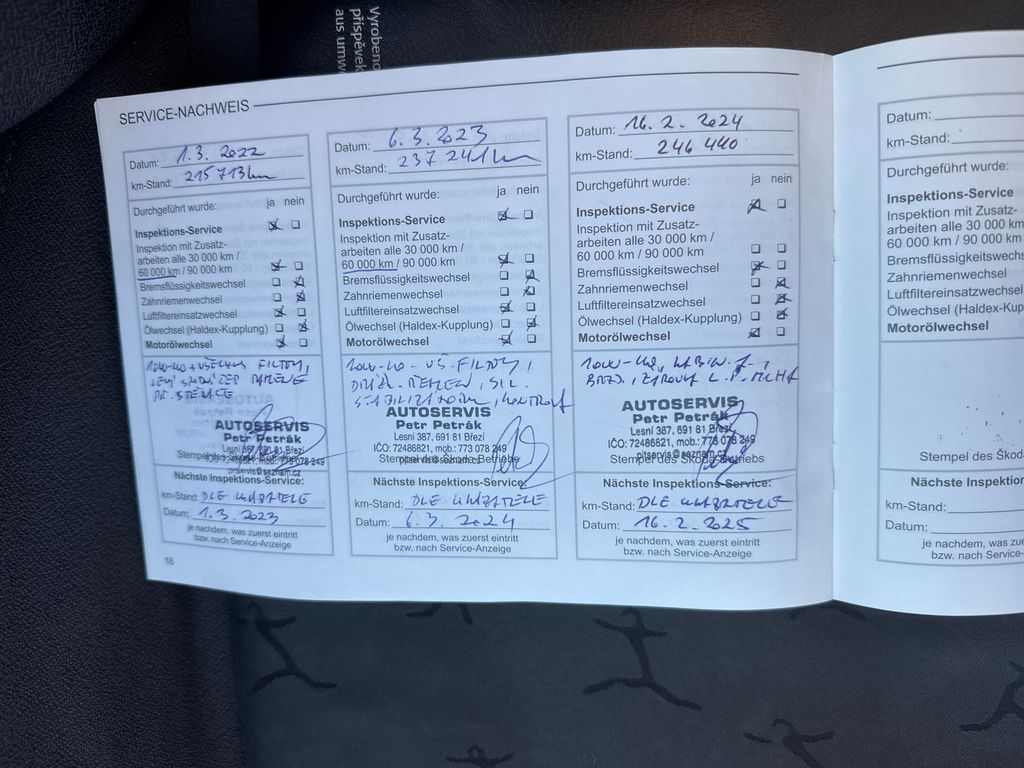 Vyrobeno
příspěvek
aus umw
SERVICE-NACHWEIS
Datum: 1.3. 2022
km-Stand: 215 713 km
Durchgeführt wurde: ja nein
Inspektions-Service
Inspektion mit Zusatz-
arbeiten alle 30 000 km /
60 000 km / 90 000 km
Bremsflüssigkeitswechsel
Zahnriemenwechsel
Luftfiltereinsatzwechsel
Ölwechsel (Haldex-Kupplung)
Motorölwechsel
FILTRY,
AUTOSERVIS
Petr Petrák
Lesní 387, 691 81 Březí
IČO: 72486821, mob.: 773 078 249
Stempel des Škoda-Betriebs
pitservis@seznam.cz
Nächste Inspektions-Service:
km-Stand: DLE UKAZATELE
Datum: 1.3. 2023
je nachdem, was zuerst eintritt
bzw. nach Service-Anzeige
18
Datum: 6.3. 2023
km-Stand: 237 241 km
Durchgeführt wurde: ja nein
Inspektions-Service
Inspektion mit Zusatz-
arbeiten alle 30 000 km /
60 000 km / 90 000 km
Bremsflüssigkeitswechsel
Zahnriemenwechsel
Luftfiltereinsatzwechsel
Ölwechsel (Haldex-Kupplung)
Motorölwechsel
VŠ. FILTRY,
AUTOSERVIS
Petr Petrák
Lesní 387, 691 81 Březí
IČO: 72486821, mob.: 773 078 249
Stempel des Škoda-Betriebs
pitservis@seznam.cz
Nächste Inspektions-Service:
km-Stand: DLE UKAZATELE
Datum: 6.3. 2024
je nachdem, was zuerst eintritt
bzw. nach Service-Anzeige
Datum: 16. 2. 2024
km-Stand: 246 440
Durchgeführt wurde: ja nein
Inspektions-Service
Inspektion mit Zusatz-
arbeiten alle 30 000 km /
60 000 km / 90 000 km
Bremsflüssigkeitswechsel
Zahnriemenwechsel
Luftfiltereinsatzwechsel
Ölwechsel (Haldex-Kupplung)
Motorölwechsel
AUTOSERVIS
Petr Petrák
Lesní 387, 691 81 Březí
IČO: 72486821, mob.: 773 078 249
pitservis@seznam.cz
Stempel des Škoda-Betriebs
Nächste Inspektions-Service:
km-Stand: DLE UKAZATELE
Datum: 16. 2. 2025
je nachdem, was zuerst eintritt
bzw. nach Service-Anzeige
Datum:
km-Stand:
Durchgeführt wurde:
Inspektions-Service
Inspektion mit Zusatz-
arbeiten alle 30 000 km
60 000 km / 90 000 km
Bremsflüssigkeitswechse
Zahnriemenwechsel
Luftfiltereinsatzwechsel
Ölwechsel (Haldex-Kupp
Motorölwechsel
Stempel des Škoda
Nächste Inspektion
km-Stand:
Datum:
je nachdem, was zue
bzw. nach Service-